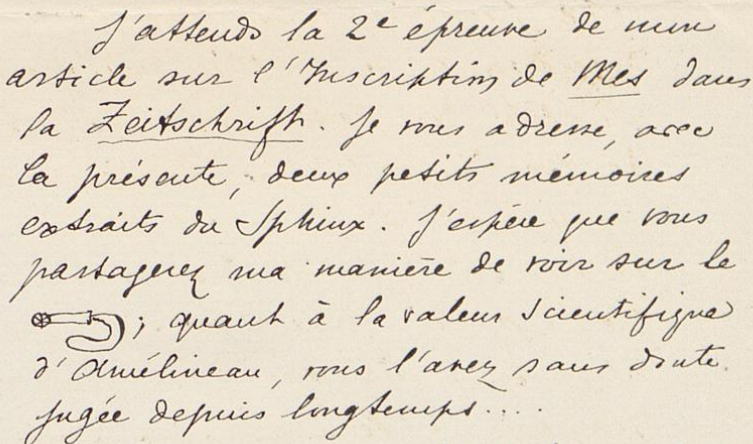 J'attends la 2e épreuve de mon
article sur l'Inscription de Mes dans
la Zeitschrift. Je vous adresse, avec
la présente, deux petits mémoires
extraits du Sphinx. J'espère que vous
partagerez ma manière de voir sur le
; quant à la valeur scientifique
d'Amélineau, vous l'avez sans doute
jugée depuis longtemps....